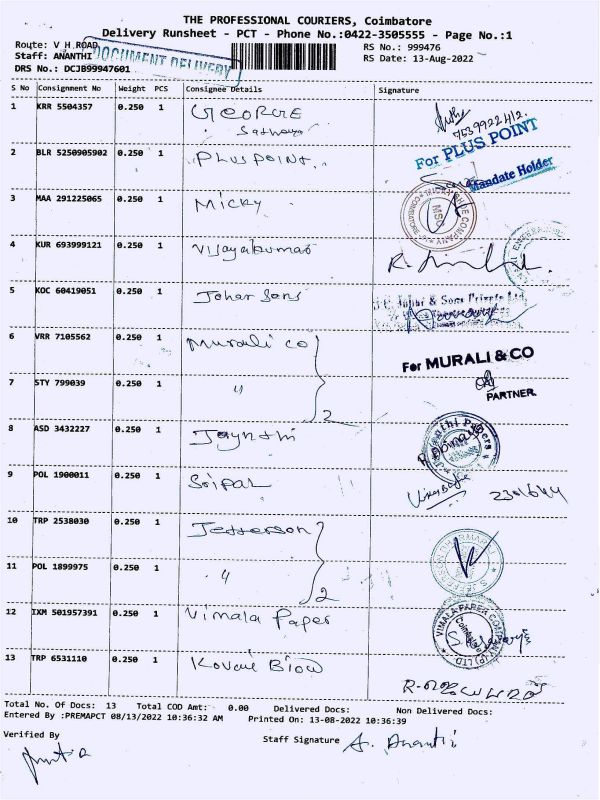 THE PROFESSIONAL COURIERS, Coimbatore
Delivery Runsheet - PCT - Phone No.:0422-3505555 - Page No.:1
Route: V H ROAD
RS No.: 999476
Staff: ANANTHI
RS Date: 13-Aug-2022
DOCUMENT DELIVERY
DRS No.: DCJB99947601
S No Consignment No Weight PCS Consignee Details Signature
1 KRR 5504357 0.250 1 GEORGE
Sathaya
7539922412.
2 BLR 5250905902 0.250 1 PLUS POINT.
For PLUS POINT
Mandate Holder
3 MAA 291225065 0.250 1 Micky
4 KUR 693999121 0.250 1 Vijayakumar
5 KOC 60419051 0.250 1 Johar Sons
& Sons Private Ltd
6 VRR 7105562 0.250 1 Murali co
For MURALI & CO
7 STY 799039 0.250 1 " 2
PARTNER
8 ASD 3432227 0.250 1 Jaynthi
9 POL 1900011 0.250 1 Sripal
10 TRP 2538030 0.250 1 Jefferson
11 POL 1899975 0.250 1 " 2
12 IXM 501957391 0.250 1 Vimala Paper
VIMALA PAPER COMPANY (P) LTD
Coimbatore
13 TRP 6531110 0.250 1 Kovai Biow
Total No. Of Docs: 13 Total COD Amt: 0.00 Delivered Docs: Non Delivered Docs:
Entered By :PREMAPCT 08/13/2022 10:36:32 AM Printed On: 13-08-2022 10:36:39
Verified By
Staff Signature A. Ananthi